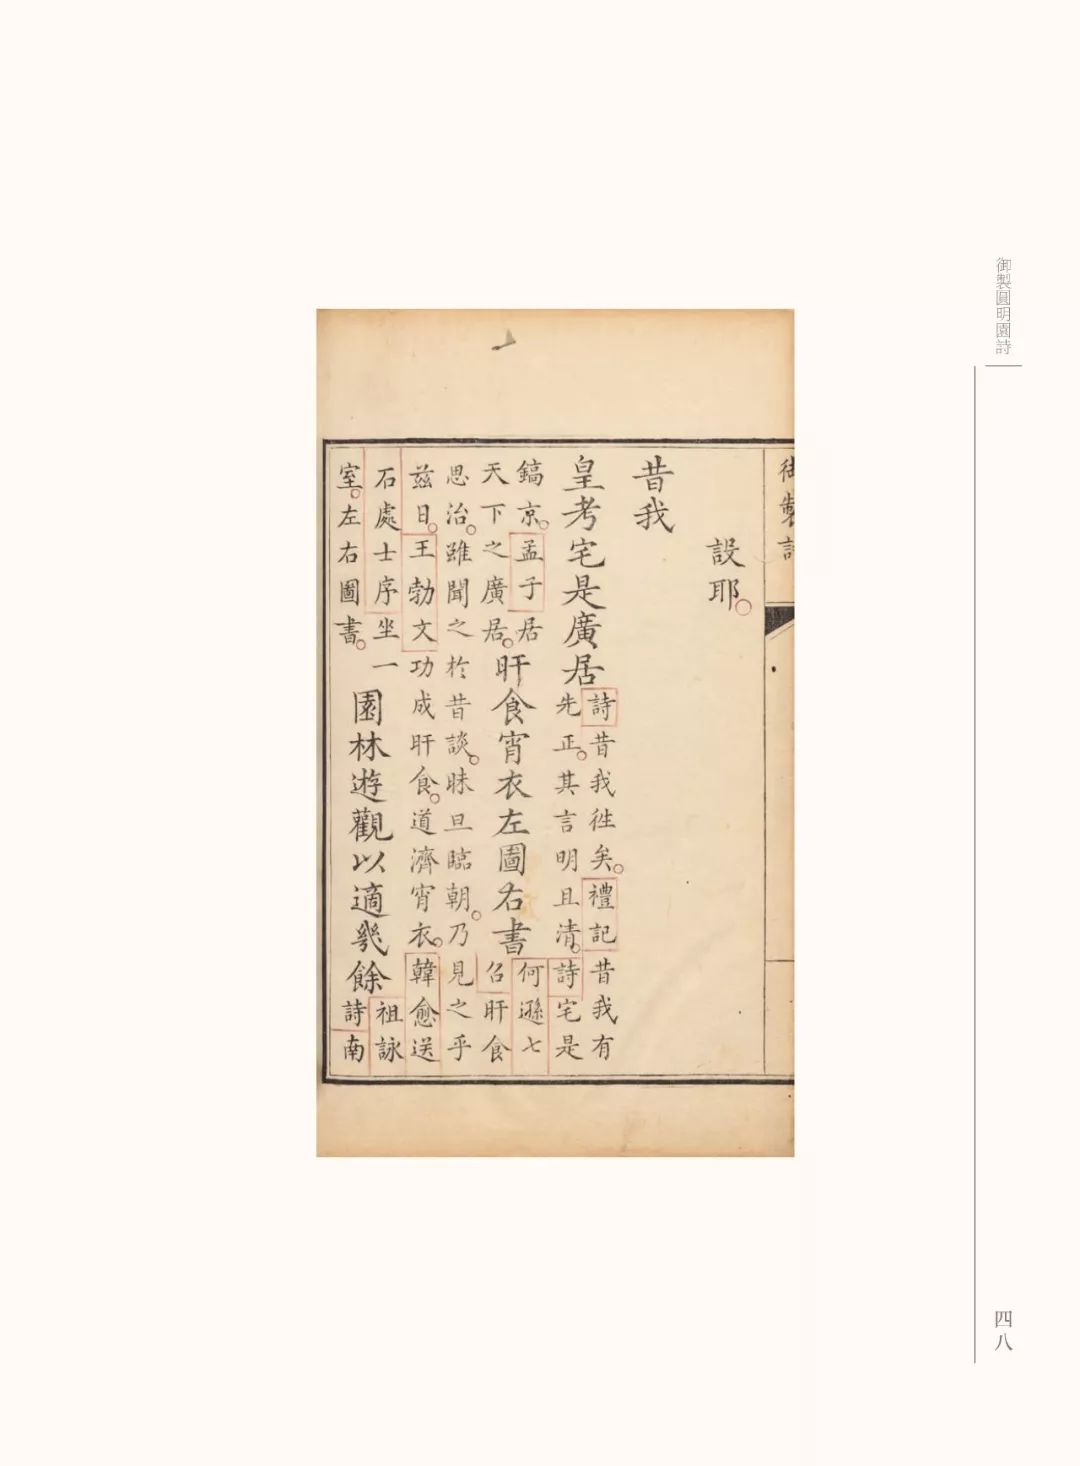 御製圓明園詩
四八
御製詩
設耶。
昔我
皇考宅是廣居
詩昔我徃矣。禮記昔我有
先正。其言明且清。詩宅是
鎬京。孟子居
天下之廣居。
旰食宵衣左圖右書
何遜七
召旰食
思治。雖聞之於昔談。昧旦臨朝。乃見之乎
兹日。王勃文功成旰食。道濟宵衣。韓愈送
石處士序坐一
室。左右圖書。
園林遊觀以適幾餘
祖詠
詩南